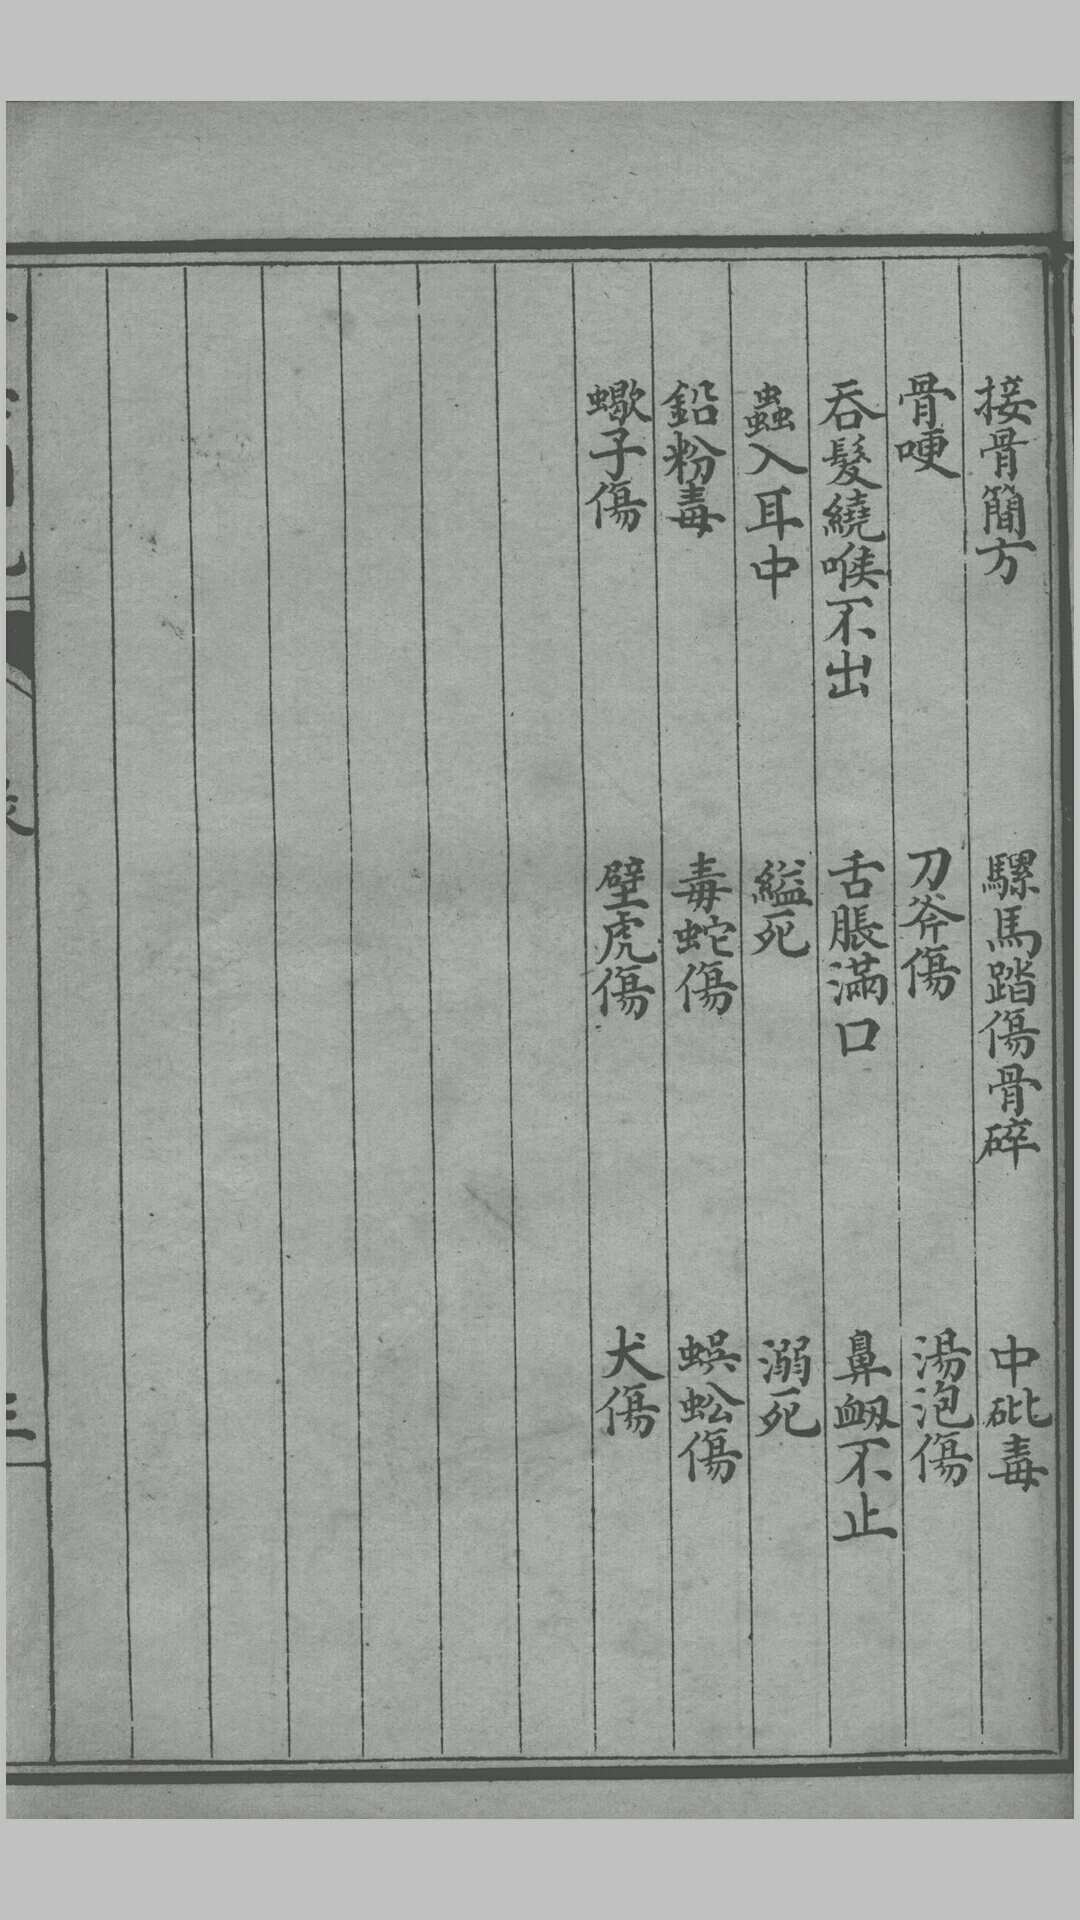 接骨簡方　騾馬踏傷骨碎　中砒毒
骨哽　刀斧傷　湯泡傷
吞髮繞喉不出　舌脹滿口　鼻衂不止
蟲入耳中　縊死　溺死
鉛粉毒　毒蛇傷　蜈蚣傷
蠍子傷　壁虎傷　犬傷
三